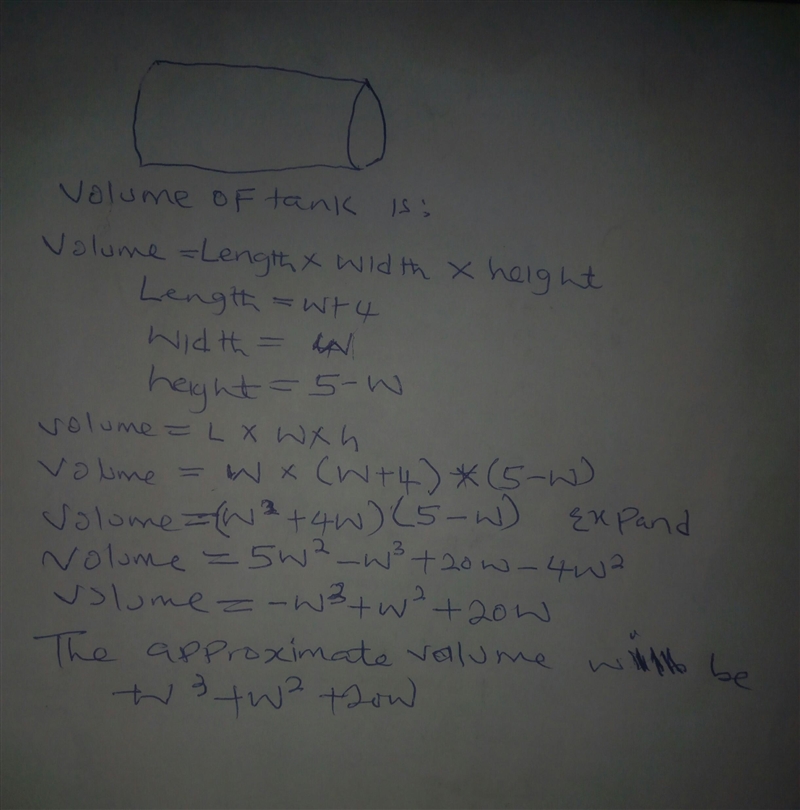 Volume OF tank is:
Volume = Length x width x height
Length = W+4
Width = W
height = 5-W
volume = L x W x h
Volume = W x (W+4) * (5-W)
Volume = (W² + 4W)(5-W) Expand
Volume = 5W² - W³ + 20W - 4W²
Volume = -W³ + W² + 20W
The approximate volume will be
-W³ + W² + 20W